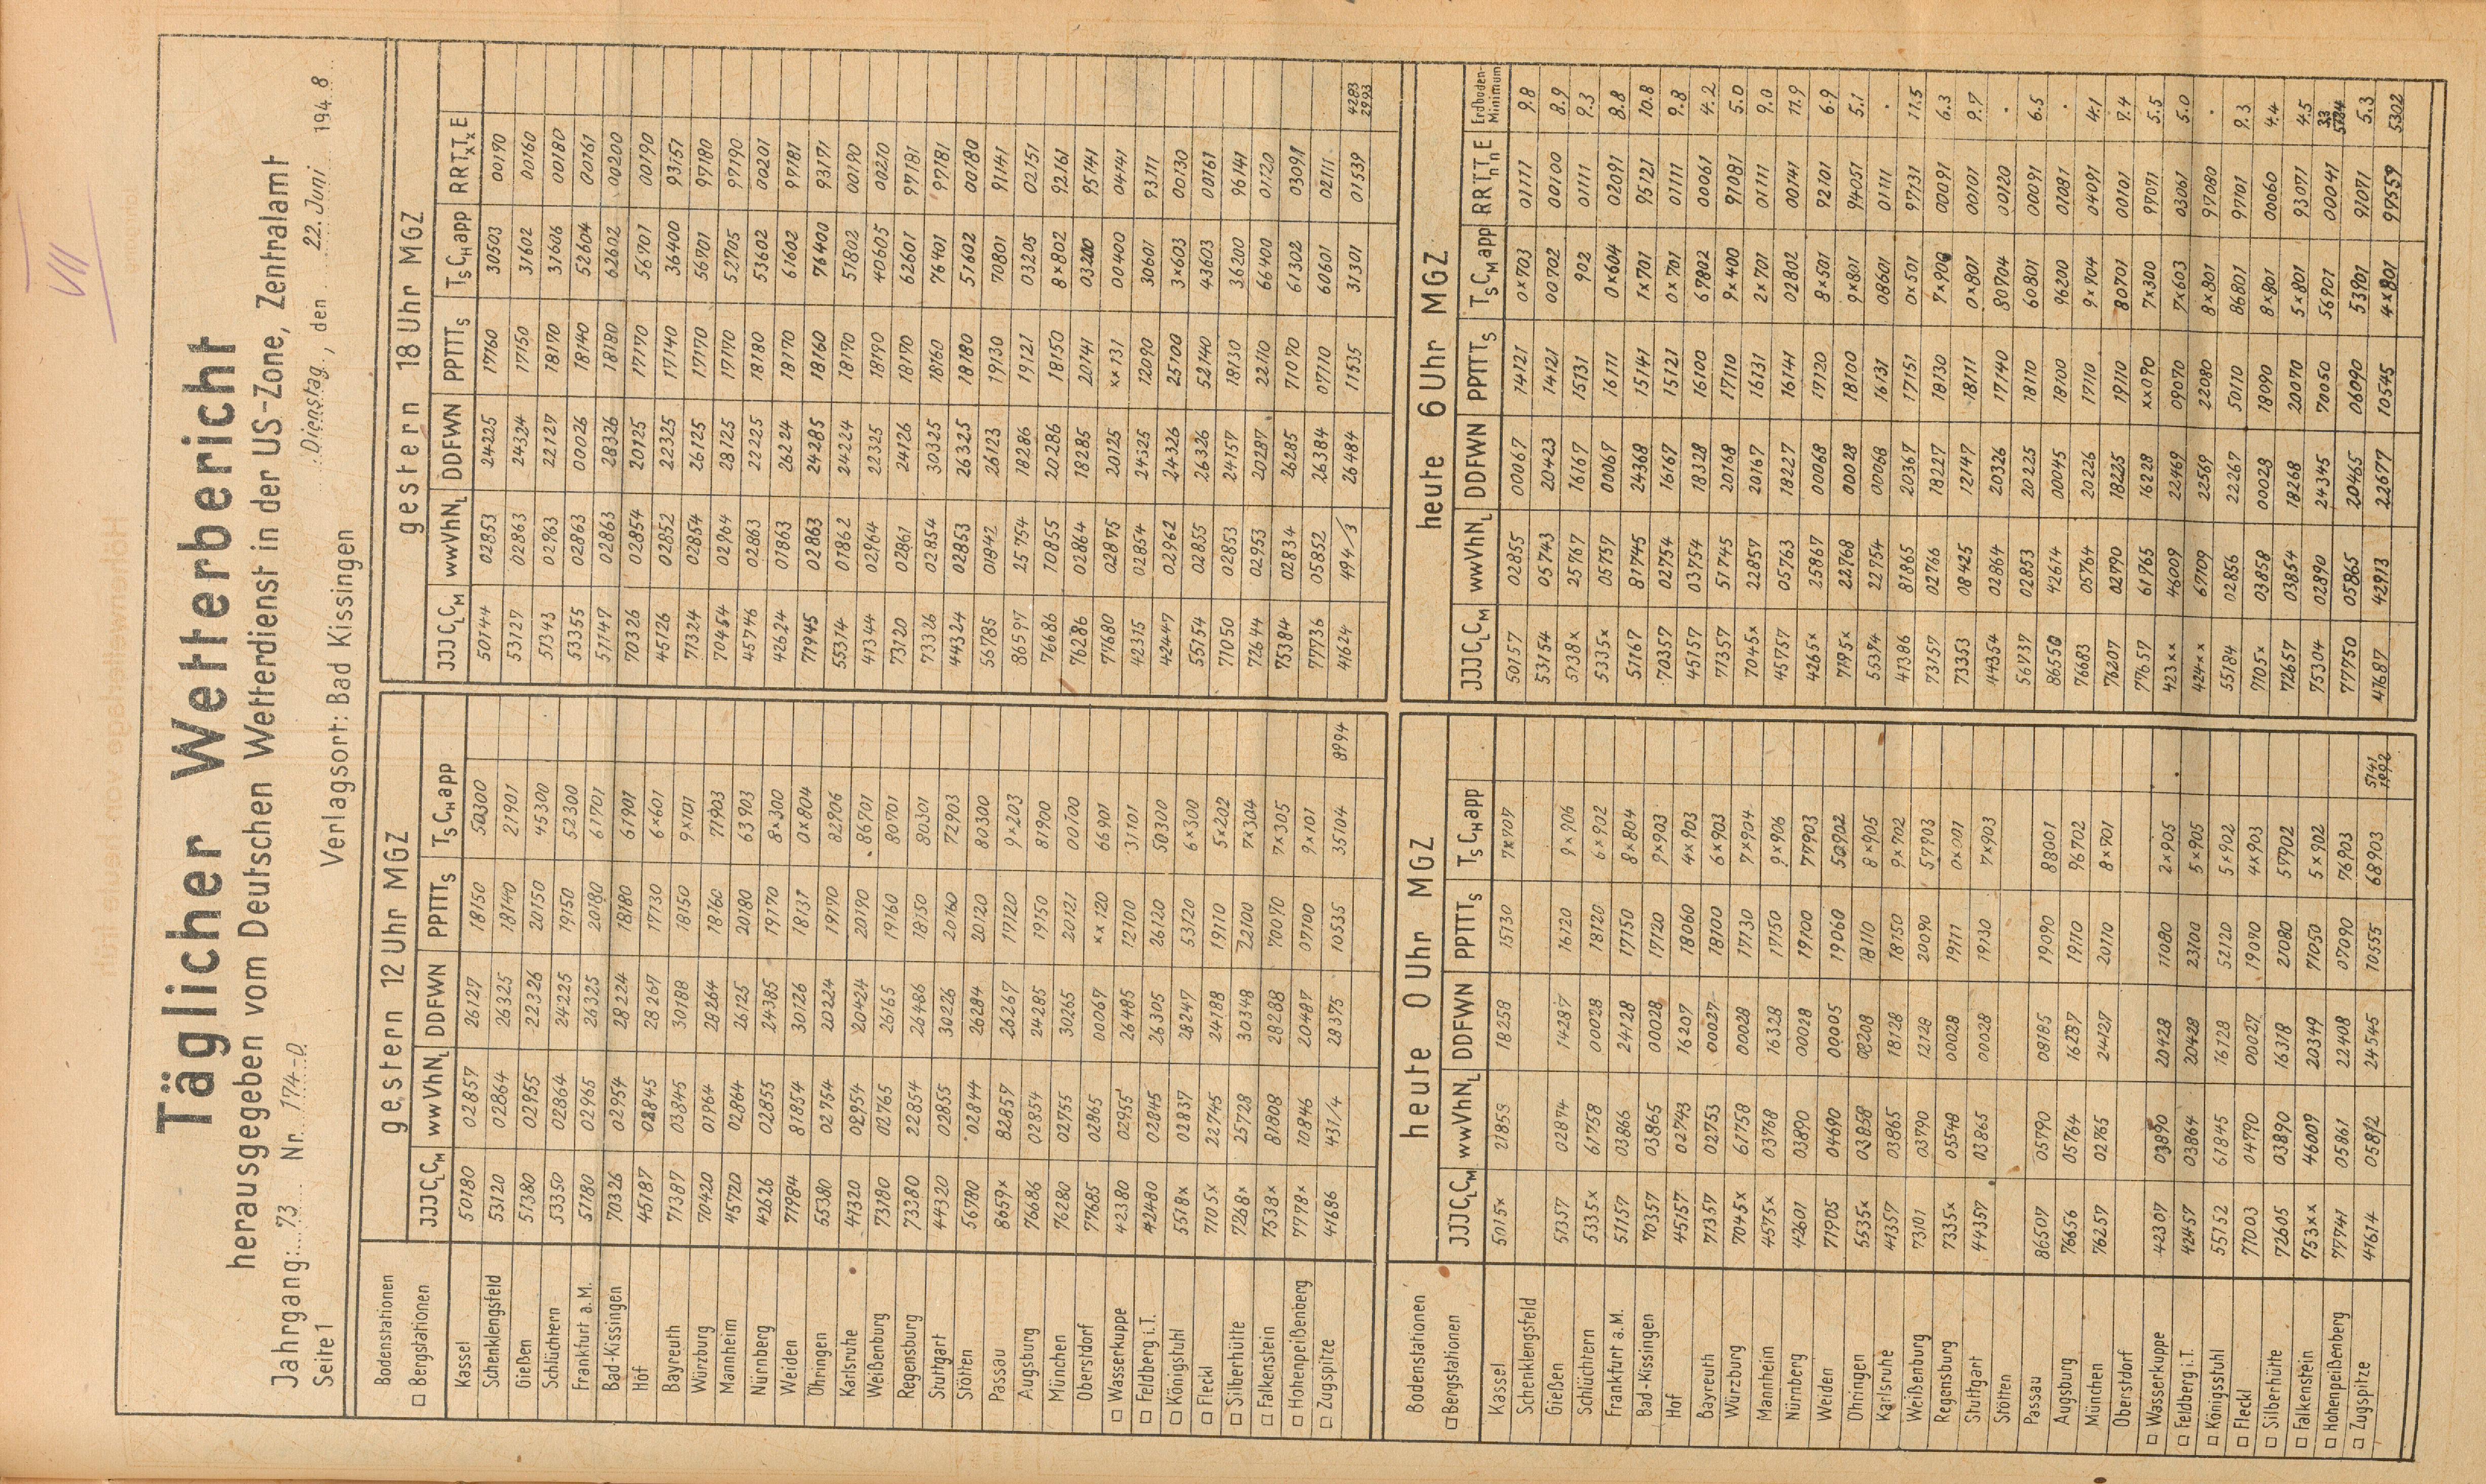 VII
Täglicher Wetterbericht
herausgegeben vom Deutschen Wetterdienst in der US-Zone, Zentralamt
Jahrgang: 73 Nr. 174-D Dienstag, den 22. Juni 1948
Seite 1 Verlagsort: Bad Kissingen
Bodenstationen gestern 12 Uhr MGZ gestern 18 Uhr MGZ
□ Bergstationen JJJCLCM wwVhNL DDFWN PPTTTs TsCHapp JJJCLCM wwVhNL DDFWN PPTTTs TsCHapp RRTxTxE
Kassel 50180 02857 26127 18150 50300 50144 02853 24225 17160 30503 00190
Schenklengsfeld 53120 02864 26325 18140 21901 53127 02863 24324 17150 31602 00160
Gießen 51380 02955 22326 20150 45300 57343 02963 22127 18170 31606 00180
Schlüchtern 53350 02864 24225 19150 52300 53355 02863 00026 18140 52604 00161
Frankfurt a.M. 51780 02965 26325 20180 61701 57147 02863 28326 18180 62602 00200
Bad-Kissingen 70326 02954 28224 18180 61901 70326 02854 20125 17170 56701 00190
Hof 45187 02845 28267 17130 6x601 45126 02852 22325 17140 36400 93151
Bayreuth 71387 03845 30188 18150 9x101 71324 02854 26125 17170 56701 97180
Würzburg 70420 01964 28264 18160 71903 70454 02964 28125 17170 52705 97190
Mannheim 45720 02864 26125 20180 63903 45746 02863 22225 18180 53602 00201
Nürnberg 42626 02855 24385 19170 8x300 42624 01863 26224 18170 61602 97181
Weiden 71984 81854 30126 18131 0x804 71945 02863 24285 18160 76400 93171
Öhringen 55380 02754 20224 19170 82906 55314 01862 24224 18170 51802 00190
Karlsruhe 41320 02954 20424 20190 86701 41344 02964 22325 18190 40605 00210
Weißenburg 73180 02765 26165 19160 80701 73120 02861 24126 18170 62601 97181
Regensburg 73380 22854 26486 18130 80301 73326 02854 30325 18160 76401 97181
Stuttgart 44320 02855 30226 20160 72903 44324 02853 26325 18180 51602 00180
Stötten 56780 02844 26284 20120 80300 56785 01842 26123 19130 70801 91141
Passau 8659x 82857 26267 17120 9x203 86597 25754 18286 19121 03205 02151
Augsburg 76686 02854 24285 19150 81900 76686 10855 20286 18150 8x802 92161
München 76280 02755 30265 20121 00100 76286 02864 18285 20141 03200 95141
Oberstdorf 77685 02865 00067 xx120 66901 77680 02875 20125 xx131 00400 04141
□ Wasserkuppe 42380 02955 26485 12100 31101 42315 02854 24325 12090 30601 93111
□ Feldberg i.T. 42480 02845 26305 26120 50300 42447 02962 24326 25100 3x603 00130
□ Königstuhl 5518x 02837 28247 53120 6x300 55154 02855 26326 52140 43603 00161
□ Fleckl 7105x 22745 24188 19110 5x202 71050 02853 24157 18130 36200 96141
□ Silberhütte 7268x 25728 30348 22100 7x304 72644 02953 20287 22110 66400 01120
□ Falkenstein 7538x 81808 28288 70070 7x305 75384 02834 26285 71070 61302 03091
□ Hohenpeißenberg 7778x 10846 20487 07100 9x101 77736 05852 26384 07110 60601 02111
□ Zugspitze 41686 431/4 28375 10535 35104 8994 41624 494/3 26484 11535 31301 01539 4283 2993
Bodenstationen heute 0 Uhr MGZ heute 6 Uhr MGZ
□ Bergstationen JJJCLCM wwVhNL DDFWN PPTTTs TsCHapp JJJCLCM wwVhNL DDFWN PPTTTs TsCMapp RRTnTnE Erdboden-Minimum
Kassel 5015x 01859 18258 15130 7x707 50157 02855 00067 14121 0x703 01111 9.8
Schenklengsfeld 53154 05743 20423 14121 00702 00100 8.9
Gießen 57357 02874 14287 16120 9x906 5738x 25767 16167 15131 902 01111 9.3
Schlüchtern 5335x 61758 00028 18120 6x902 5335x 05757 00067 16111 0x604 02091 8.8
Frankfurt a.M. 51157 03866 24128 17150 8x804 51167 81745 24368 15141 1x701 95121 10.8
Bad-Kissingen 70357 03865 00028 17120 9x903 70357 02754 16167 15121 0x701 01111 9.8
Hof 45157 02743 16207 18060 4x903 45157 03754 18328 16100 67802 00061 4.2
Bayreuth 71357 02753 00027 18100 6x903 71357 51745 20168 17110 9x400 91081 5.0
Würzburg 7045x 61758 00028 17130 7x904 7045x 22857 20167 16131 2x701 01111 9.0
Mannheim 4575x 03768 16328 17150 9x906 45757 05763 18227 16141 02802 00141 11.9
Nürnberg 42601 03890 00028 19100 77903 4265x 25867 00068 17120 8x501 92101 6.9
Weiden 71905 04690 00005 19060 50902 7195x 22768 00028 18100 9x801 94051 5.1
Öhringen 5535x 03858 08208 18110 8x905 55374 22754 00068 16131 08601 01111 .
Karlsruhe 41357 03865 18128 18150 9x702 41386 81865 20367 17151 0x501 97131 11.5
Weißenburg 73101 03790 12128 20090 57903 73157 02766 18227 18130 7x900 00091 6.3
Regensburg 7335x 05548 00028 19111 0x001 73353 08425 12147 18111 0x801 00101 9.7
Stuttgart 44357 03865 00028 19130 7x903 44354 02864 20326 17140 80704 00120 .
Stötten 56737 02853 20225 18110 60801 00091 6.5
Passau 86507 05790 08185 19090 88001 86550 42674 00045 18100 96200 01081 .
Augsburg 76656 05764 16287 19110 96702 76683 05764 20226 17110 9x904 04091 4.1
München 76257 02765 24127 20110 8x701 76207 02790 18225 19110 80701 00101 7.4
Oberstdorf 77657 61765 16228 xx090 7x300 97071 5.5
□ Wasserkuppe 42307 03890 20428 11080 2x905 423xx 46009 22469 09070 7x603 03061 5.0
□ Feldberg i.T. 42457 03864 20428 23100 5x905 424xx 67709 22569 22080 8x801 97080 .
□ Königsstuhl 55752 61845 16128 52120 5x902 55184 02856 22267 50110 86801 97101 9.3
□ Fleckl 71003 04790 00027 19010 4x903 7105x 03858 00028 18090 8x801 00060 4.4
□ Silberhütte 72605 03890 16318 21080 57902 72657 03854 18268 20070 5x801 93071 4.5
□ Falkenstein 753xx 46009 20349 71050 5x902 75304 02890 24345 70050 56901 00041 3.3
□ Hohenpeißenberg 77741 05861 22408 07090 76903 77750 05865 20465 06090 53901 91071 5.3
□ Zugspitze 41614 058/2 24545 10555 68903 5141 1992 41687 42913 22677 10545 4x801 97559 5302